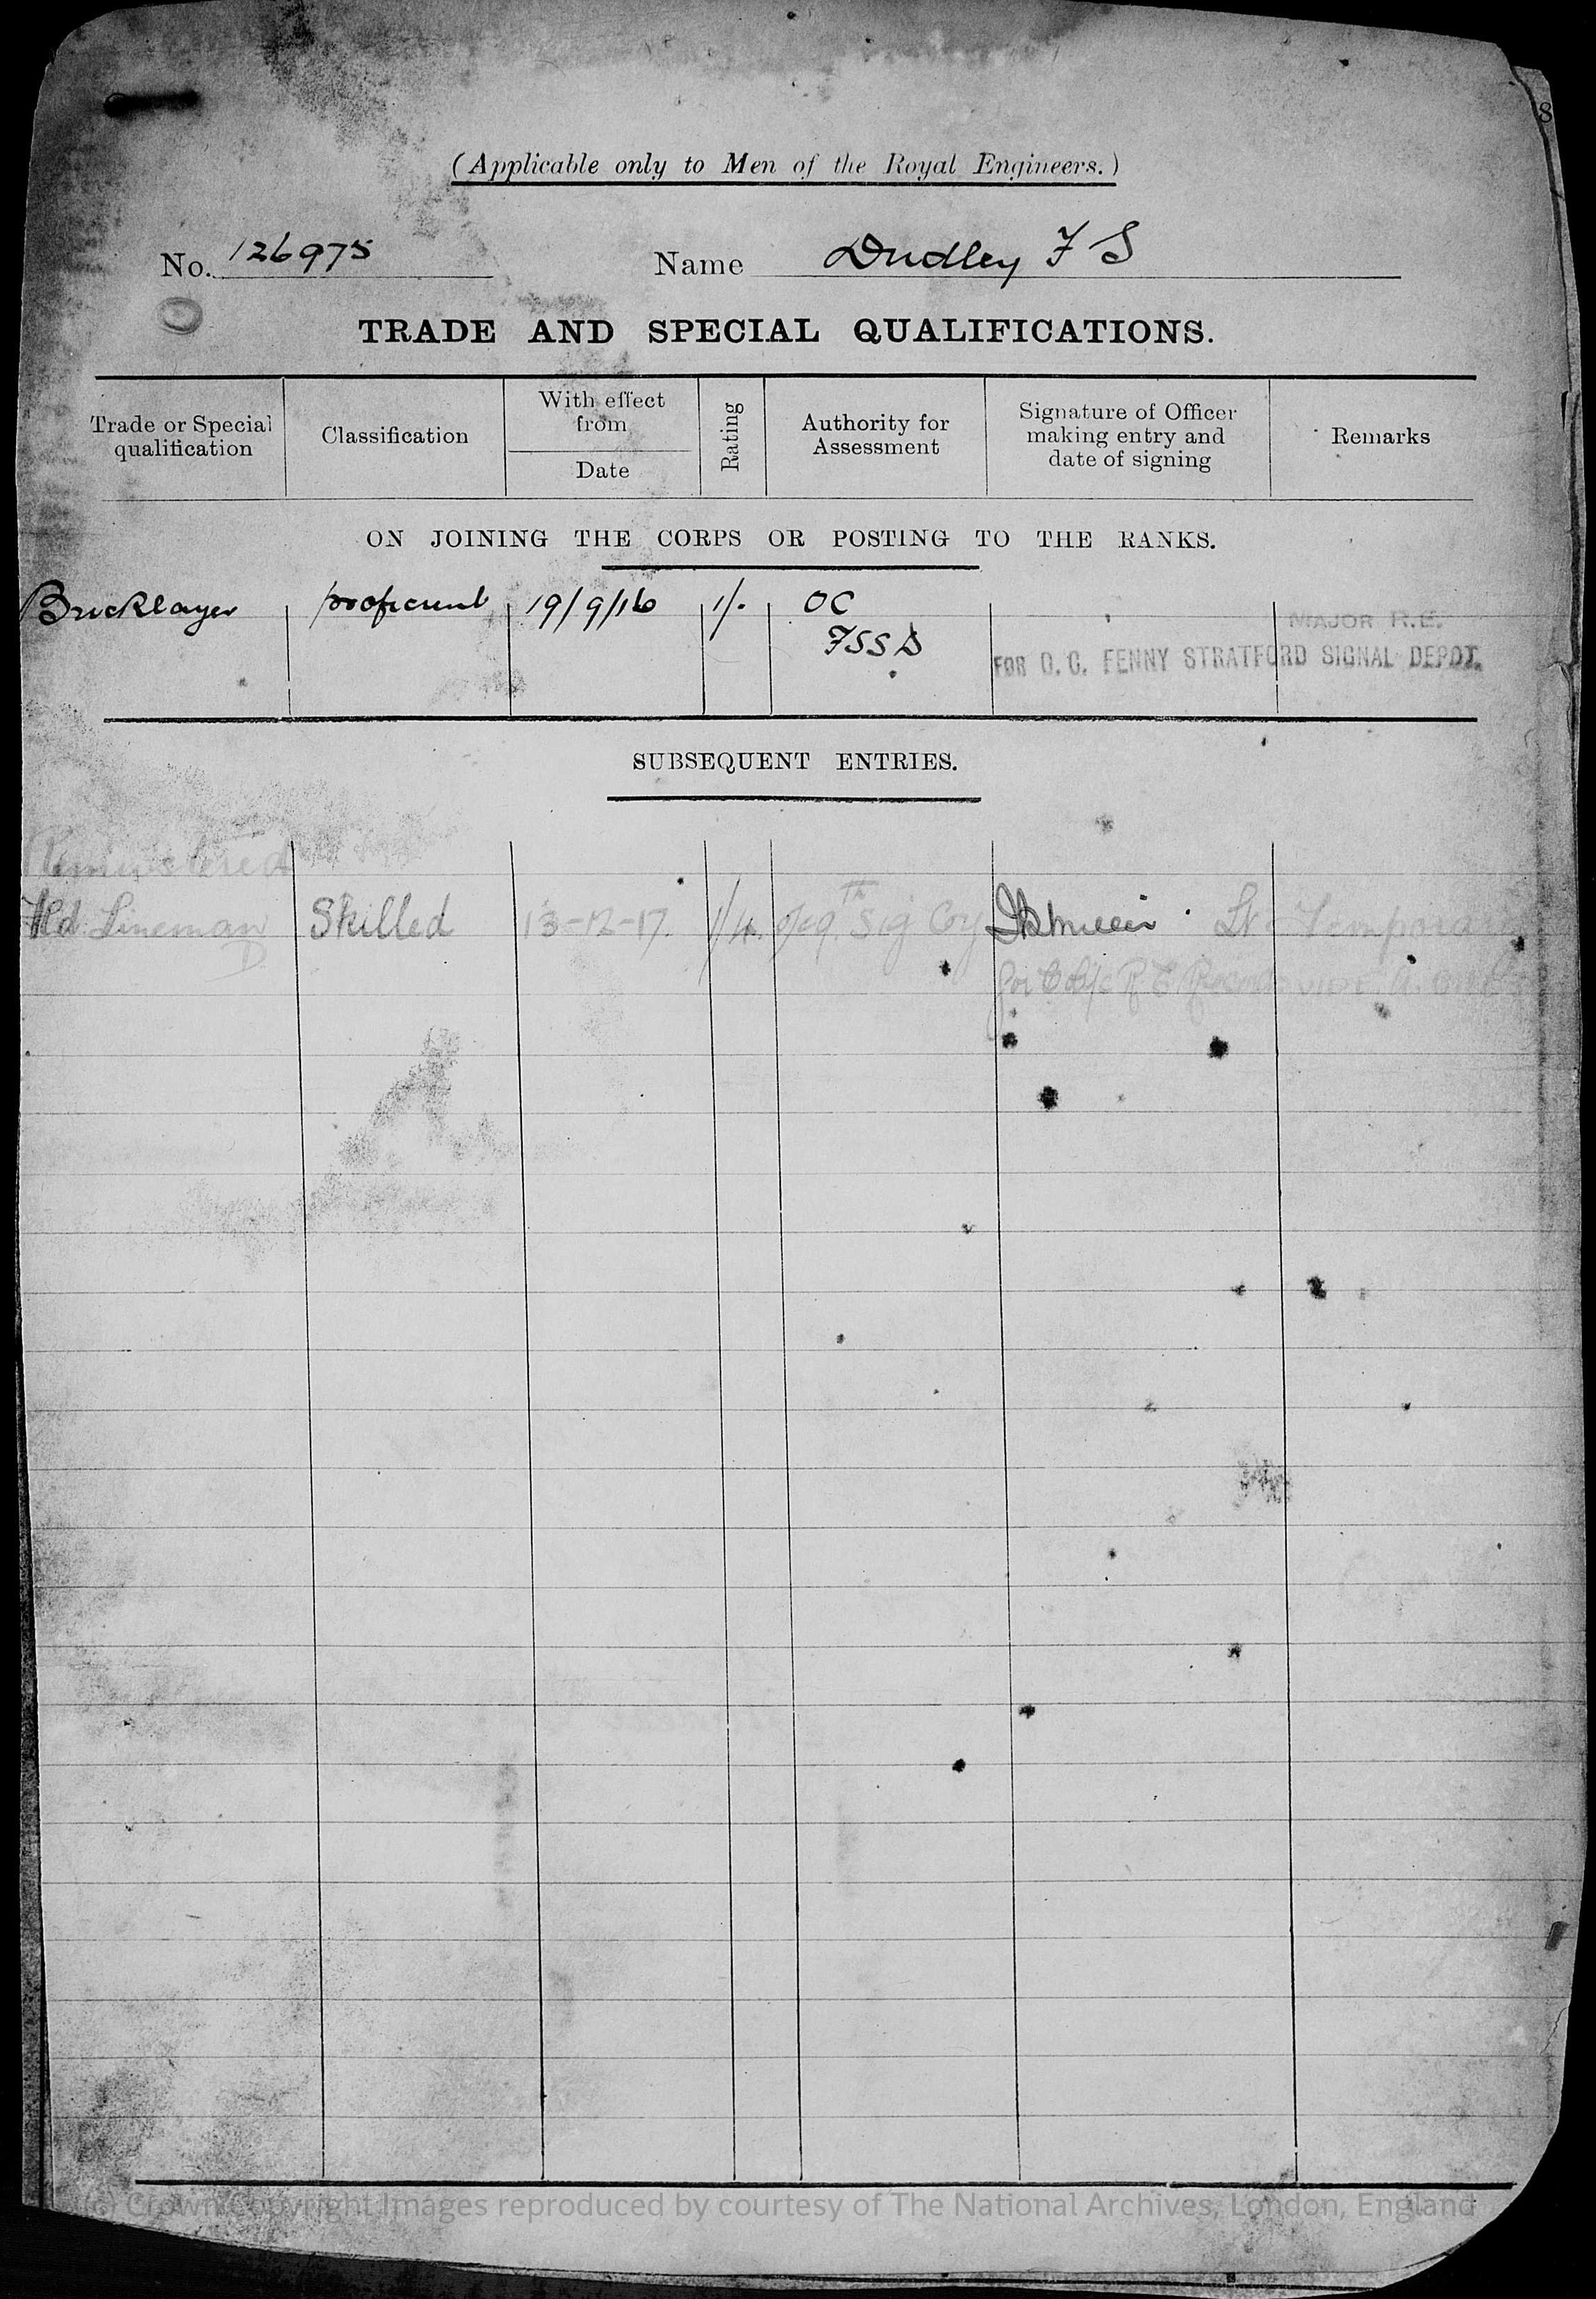 8
(Applicable only to Men of the Royal Engineers.)
No. 126975 Name Dudley F S
TRADE AND SPECIAL QUALIFICATIONS.
Trade or Special qualification
Classification
With effect from
Date
Rating
Authority for Assessment
Signature of Officer making entry and date of signing
Remarks
ON JOINING THE CORPS OR POSTING TO THE RANKS.
Bricklayer proficient 19/9/16 1/- OC
FSSD
MAJOR R.E.
FOR O.C. FENNY STRATFORD SIGNAL DEPOT.
SUBSEQUENT ENTRIES.
Remustered
Fld. Lineman Skilled 13-12-17. 1/4. Sig Coy Lt Temporary
D for R E Records
(c) Crown Copyright Images reproduced by courtesy of The National Archives, London, England